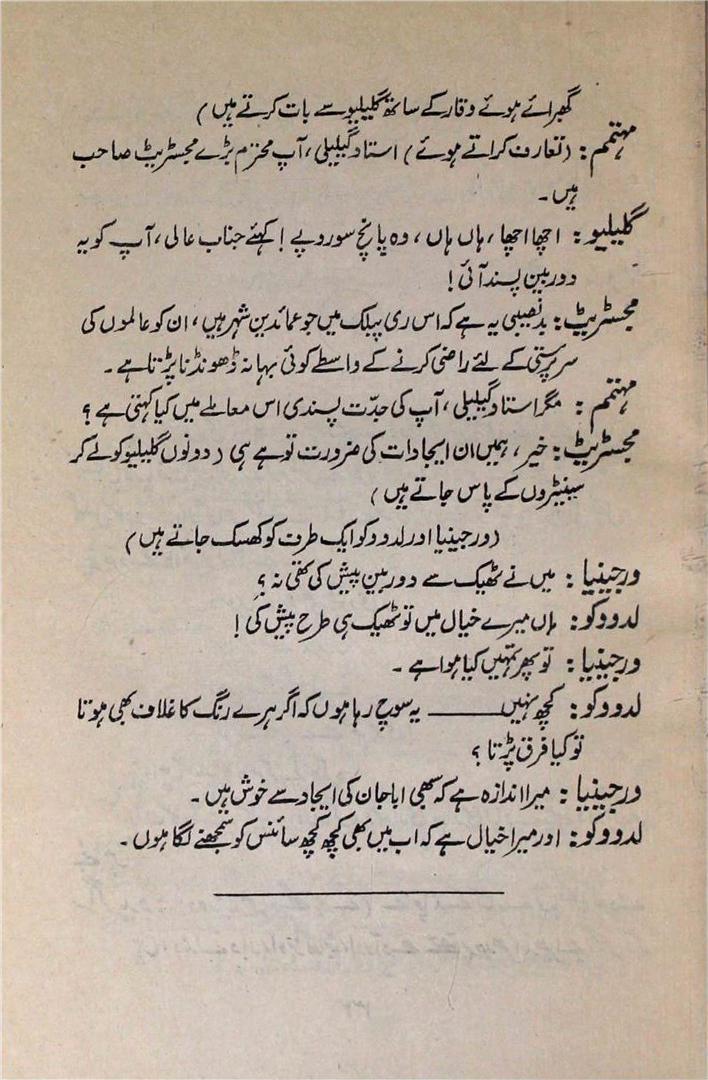 گھبرائے ہوئے وقار کے ساتھ گلیلیو سے بات کرتے ہیں)
مہتمم: (تعارف کراتے ہوئے) استاد گیلیلی، آپ محترم بڑے مجسٹریٹ صاحب
ہیں۔
گلیلیو: اچھا اچھا، ہاں ہاں، وہ پانچ سو روپے! کہئے جناب عالی، آپ کو یہ
دوربین پسند آئی!
مجسٹریٹ: بدنصیبی یہ ہے کہ اس ری پبلک میں جو عمائدین شہر ہیں، ان کو عالموں کی
سرپرستی کے لئے راضی کرنے کے واسطے کوئی بہانہ ڈھونڈنا پڑتا ہے۔
مہتمم: مگر استاد گیلیلی، آپ کی جدّت پسندی اس معاملے میں کیا کہتی ہے؟
مجسٹریٹ: خیر، ہمیں ان ایجادات کی ضرورت تو ہے ہی (دونوں گلیلیو کو لے کر
سینیٹروں کے پاس جاتے ہیں)
(ورجینیا اور لدووکو ایک طرف کو کھسک جاتے ہیں)
ورجینیا: میں نے ٹھیک سے دوربین پیش کی تھی نہ؟
لدووکو: ہاں میرے خیال میں تو ٹھیک ہی طرح پیش کی!
ورجینیا: تو پھر تمہیں کیا ہوا ہے۔
لدووکو: کچھ نہیں ــــــــ یہ سوچ رہا ہوں کہ اگر ہرے رنگ کا غلاف بھی ہوتا
تو کیا فرق پڑتا؟
ورجینیا: میرا اندازہ ہے کہ سبھی ابا جان کی ایجاد سے خوش ہیں۔
لدووکو: اور میرا خیال ہے کہ اب میں بھی کچھ کچھ سائنس کو سمجھنے لگا ہوں۔